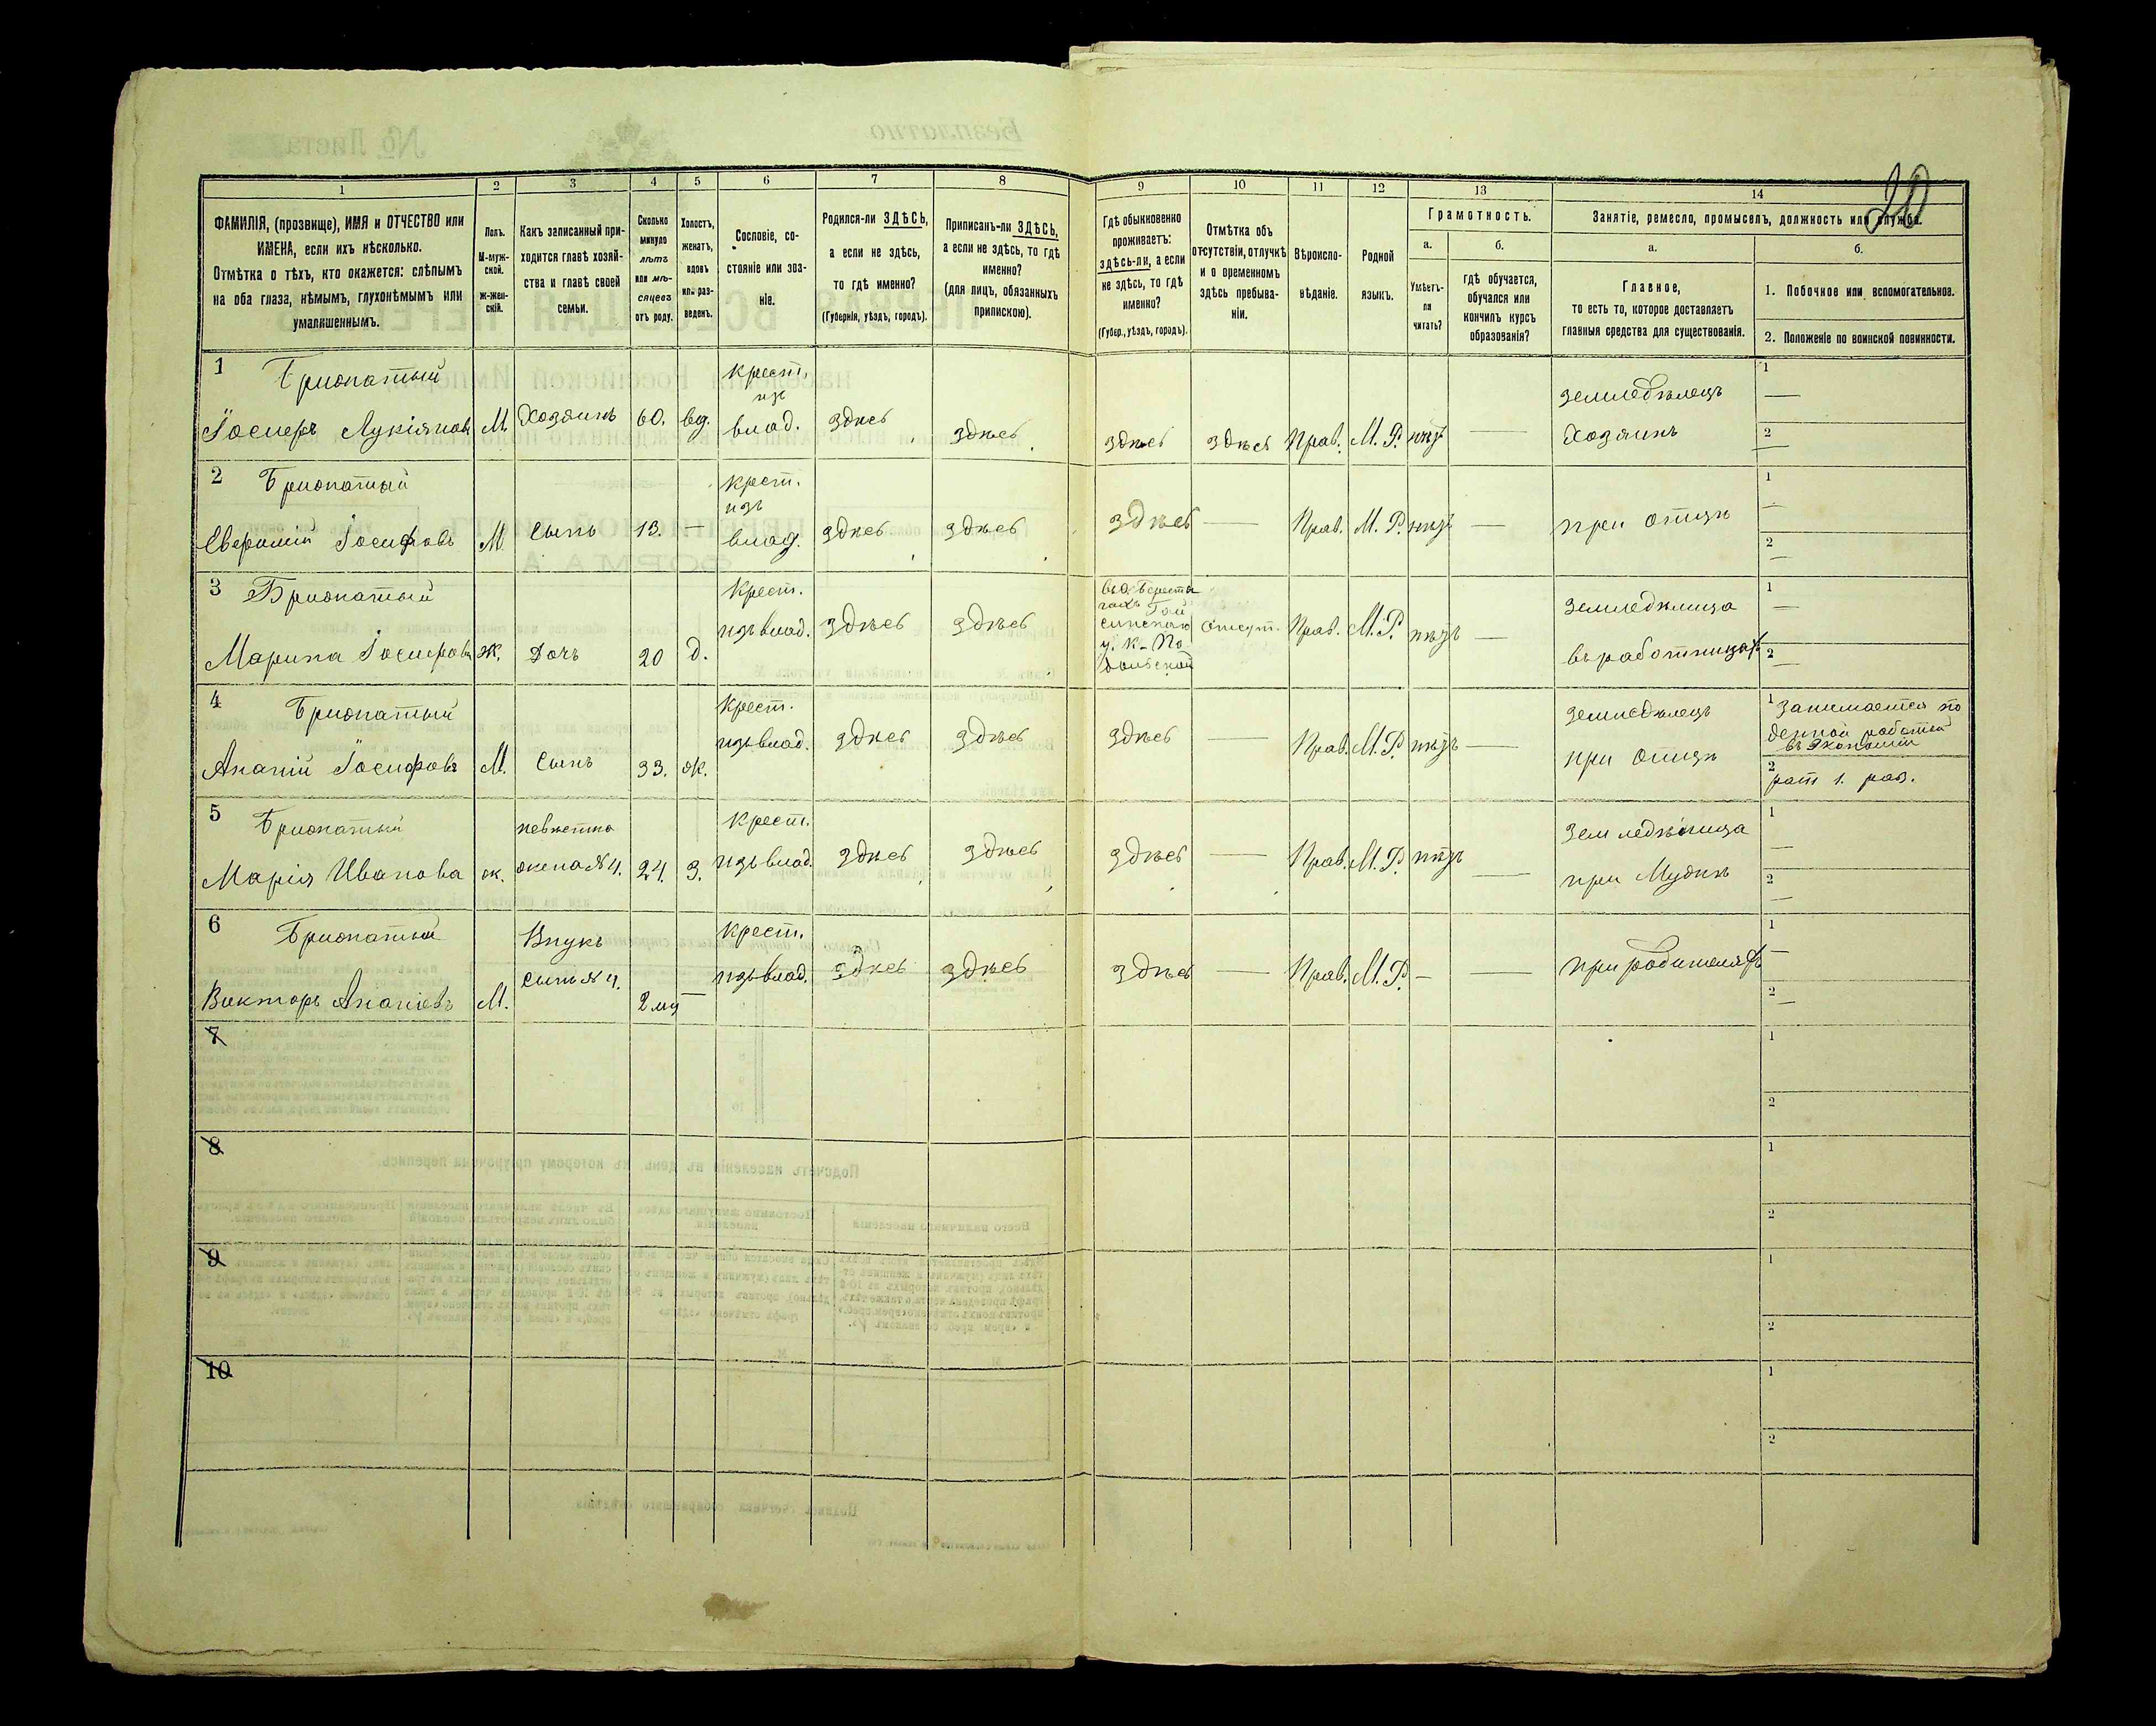 20
1 2 3 4 5 6 7 8 9 10 11 12 13 14
ФАМИЛІЯ, (прозвище), ИМЯ и ОТЧЕСТВО или
ИМЕНА, если ихъ нѣсколько.
Отмѣтка о тѣхъ, кто окажется: слѣпымъ
на оба глаза, нѣмымъ, глухонѣмымъ или
умалишеннымъ.
Полъ.
М-муж-
ской.
ж-жен-
скій.
Какъ записанный при-
ходится главѣ хозяй-
ства и главѣ своей
семьи.
Сколько
минуло
лѣтъ
или мѣ-
сяцевъ
отъ роду.
Холостъ,
женатъ,
вдовъ
или раз-
веденъ.
Сословіе, со-
стояніе или зва-
ніе.
Родился-ли ЗДѢСЬ,
а если не здѣсь,
то гдѣ именно?
(Губернія, уѣздъ, городъ).
Приписанъ-ли ЗДѢСЬ,
а если не здѣсь, то гдѣ
именно?
(для лицъ, обязанныхъ
припискою).
Гдѣ обыкновенно
проживаетъ:
здѣсь-ли, а если
не здѣсь, то гдѣ
именно?
(Губер., уѣздъ, городъ).
Отмѣтка объ
отсутствіи, отлучкѣ
и о временномъ
здѣсь пребыва-
ніи.
Вѣроиспо-
вѣданіе.
Родной
языкъ.
Грамотность.
а.
Умѣетъ-
ли
читать?
б.
гдѣ обучается,
обучался или
кончилъ курсъ
образованія?
Занятіе, ремесло, промыселъ, должность или служба.
а.
Главное,
то есть то, которое доставляетъ
главныя средства для существованія.
б.
1. Побочное или вспомогательное.
2. Положеніе по воинской повинности.
1 Брионатный крест. землѣдѣлецъ 1 —
изъ
Іосифъ Лукіяновъ М. Хозяинъ 60. вд. влад. здѣсь здѣсь здѣсь здѣсь Прав. М. Р. нѣтъ — Хозяинъ 2 —
2 Брионатный крест. 1 —
изъ
Іосифовъ М. Сынъ 13. — влад. здѣсь здѣсь здѣсь — Прав. М. Р. нѣтъ — при отцѣ 2 —
3 Брионатный крест. землѣдѣлица 1 —
Марина Іосифова Ж. Дочь 20 д. изъ влад. здѣсь здѣсь отсут. Прав. М. Р. нѣтъ — въ работницахъ 2 —
у. К-По
дольской
4 Брионатный крест. землѣдѣлецъ 1 Занимается по
денной работой
въ экономіи
Ананій Іосифовъ М. Сынъ 33. ж. изъ влад. здѣсь здѣсь здѣсь — Прав. М. Р. нѣтъ — при отцѣ 2 рат 1. раз.
5 Брионатный невѣстка крест. землѣдѣлица 1 —
Марія Иванова ж. жена № 4. 24. З. изъ влад. здѣсь здѣсь здѣсь — Прав. М. Р. нѣтъ — при Мужѣ 2 —
6 Брионатный Внукъ крест. 1 —
Викторъ Ананіевъ М. сынъ № 4. 2 мц — изъ влад. здѣсь здѣсь здѣсь — Прав. М. Р. — — при родителяхъ 2 —
7 1
2
8 1
2
9 1
2
10 1
2